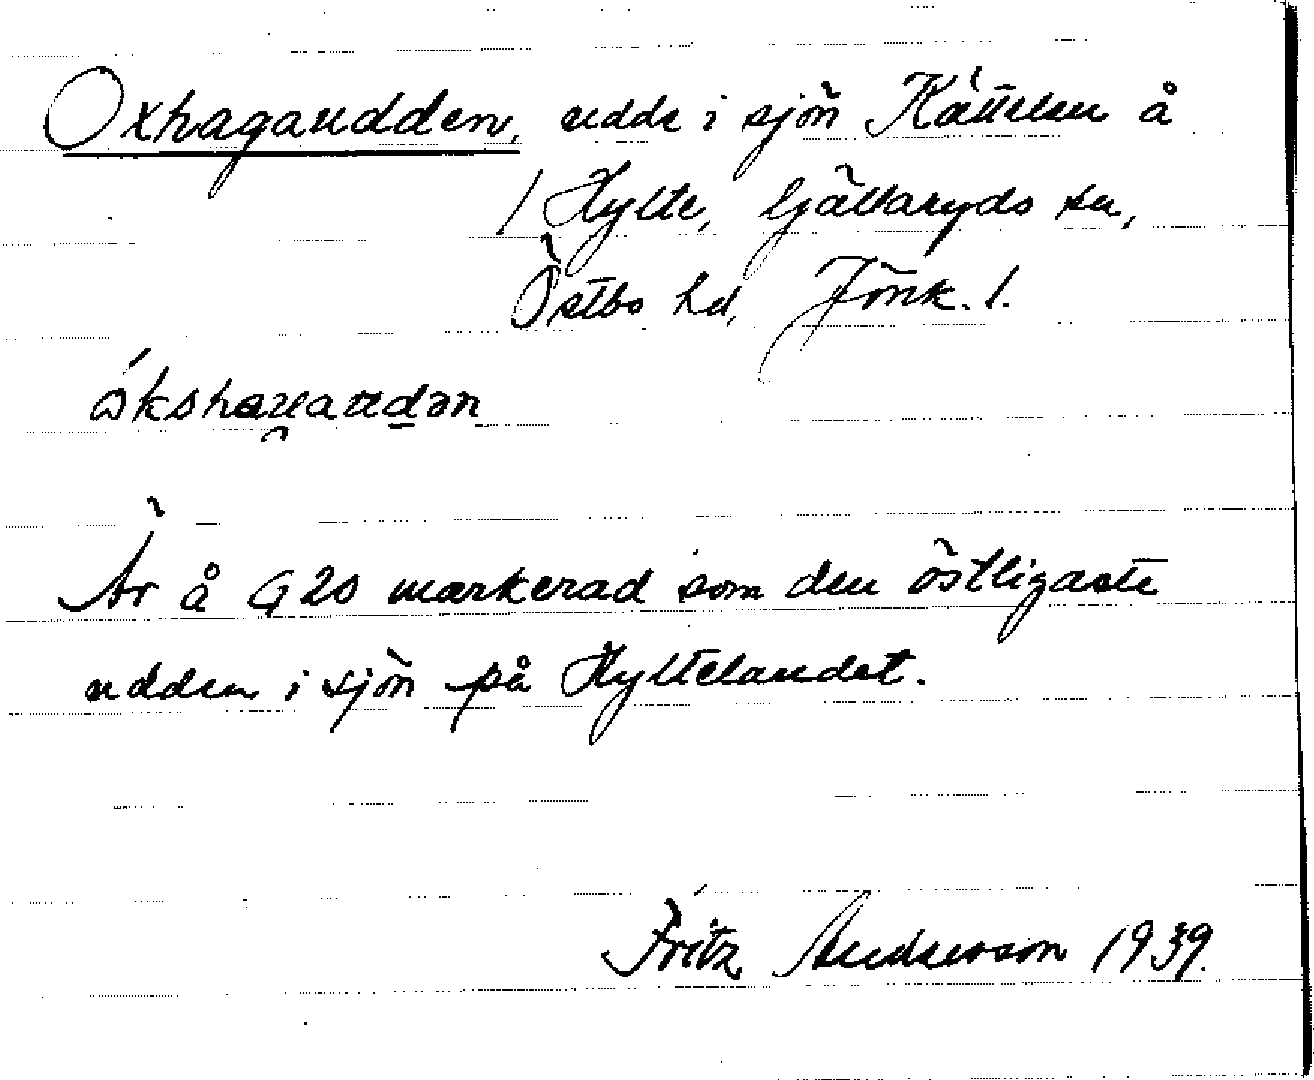 Oxhagaudden, udde i sjön Kätteln å
1 Hylte, Gällaryds sn,
Östbo hd, Jönk. l.
ókshaɣaudən
Är å G 20 markerad som den östligaste
udden i sjön på Hyltelandet.
Fritz Anderson 1939.